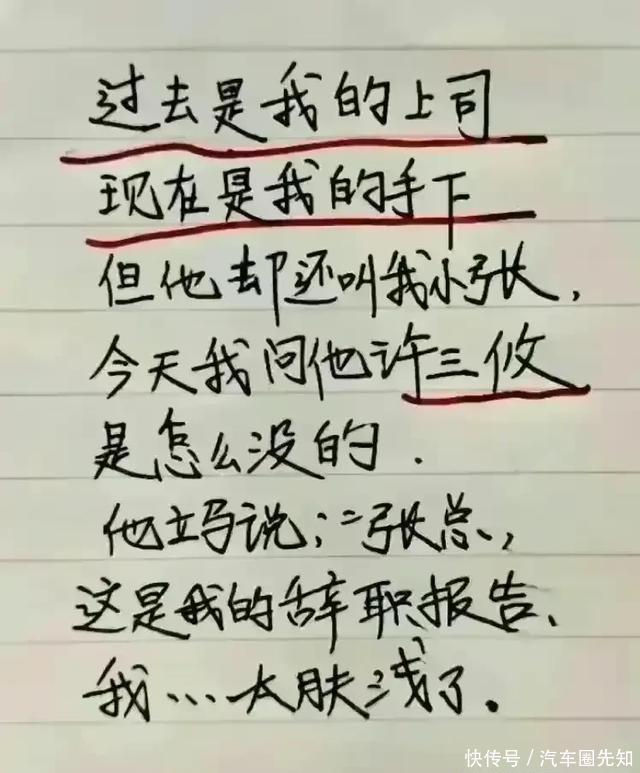 过去是我的上司
现在是我的手下
但他却还叫我小张,
今天我问他许三攸
是怎么没的.
他立马说:"张总,
这是我的辞职报告,
我...太肤浅了。
快传号/汽车圈先知